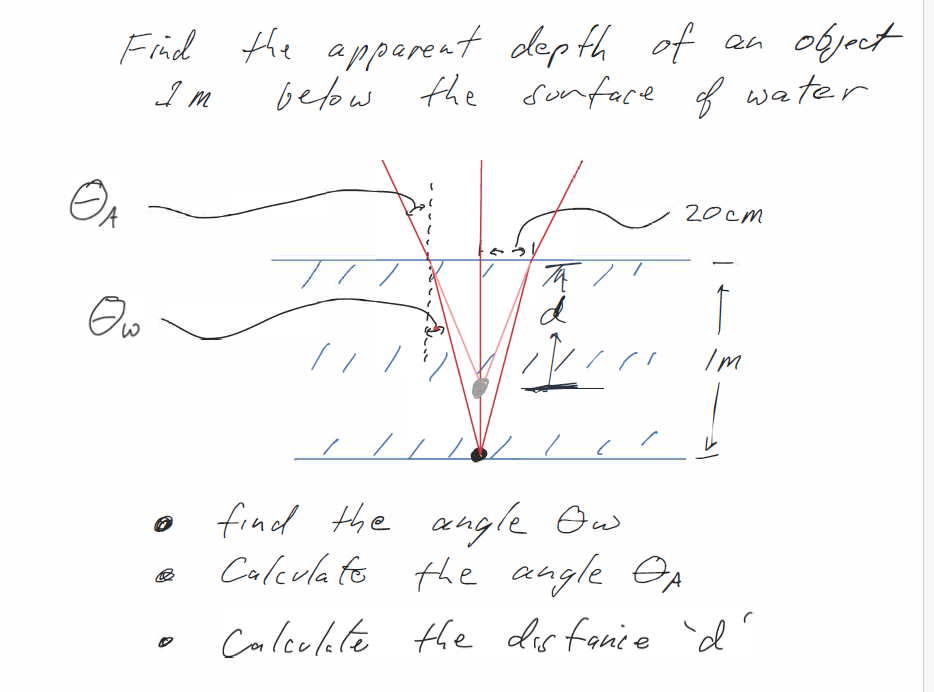 Find the apparent depth of an object
1m below the surface of water
θA
20cm
d
θw
1m
• find the angle θw
• Calculate the angle θA
• Calculate the distance 'd'